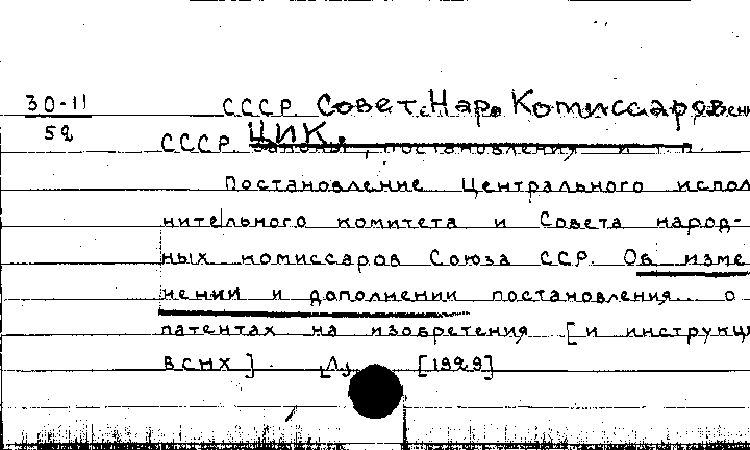 30-11
52
СССР. Совет. Нар. Комиссаров
СССР. ЦИК.
Законы, постановления и т.п.
Постановление Центрального испол
нительного комитета и Совета народ-
ных комиссаров Союза ССР. Об изме
нении и дополнении постановления о
патентах на изобретения [и инструкц
ВСНХ]. [Л] [1929]